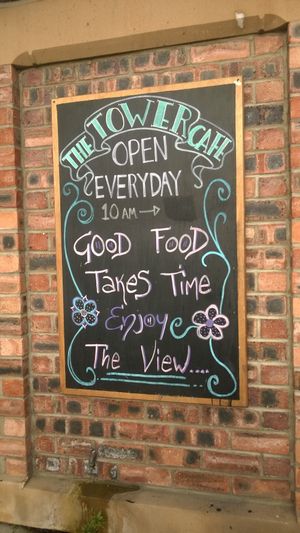 THE TOWER CAFE
OPEN
EVERYDAY
10 AM →
GOOD FOOD
Takes Time
Enjoy
The View....